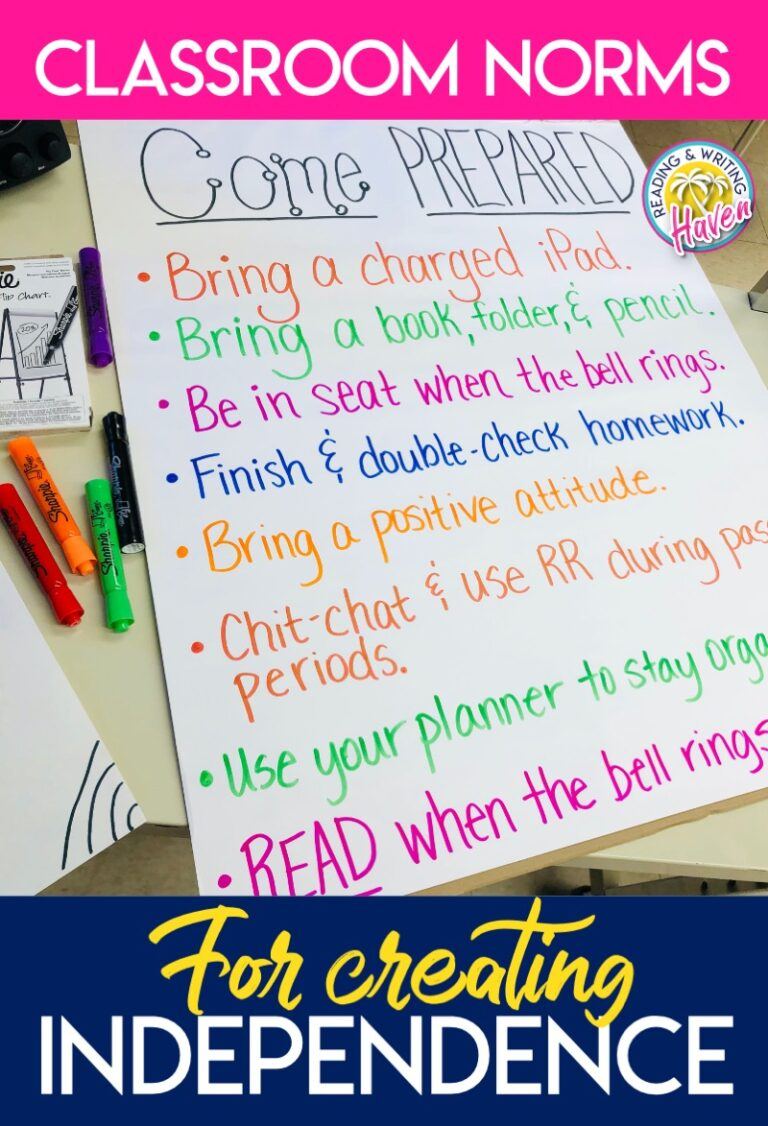 CLASSROOM NORMS
Come PREPARED
READING & WRITING
Haven
• Bring a charged iPad.
• Bring a book, folder, & pencil.
• Be in seat when the bell rings.
• Finish & double-check homework.
• Bring a positive attitude.
• Chit-chat & use RR during pas
periods.
• Use your planner to stay orga
• READ when the bell rings
lip Chart.
20%
Sharpie
Sharpie
Sharpie
Sharpie
For creating
INDEPENDENCE